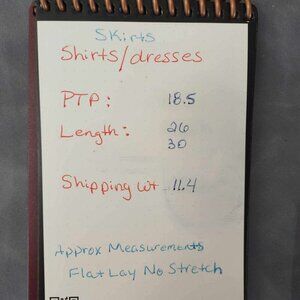 Skirts
Shirts/dresses
PTP: 18.5
Length: 26
30
Shipping wt 11.4
Approx Measurements
Flat Lay No Stretch